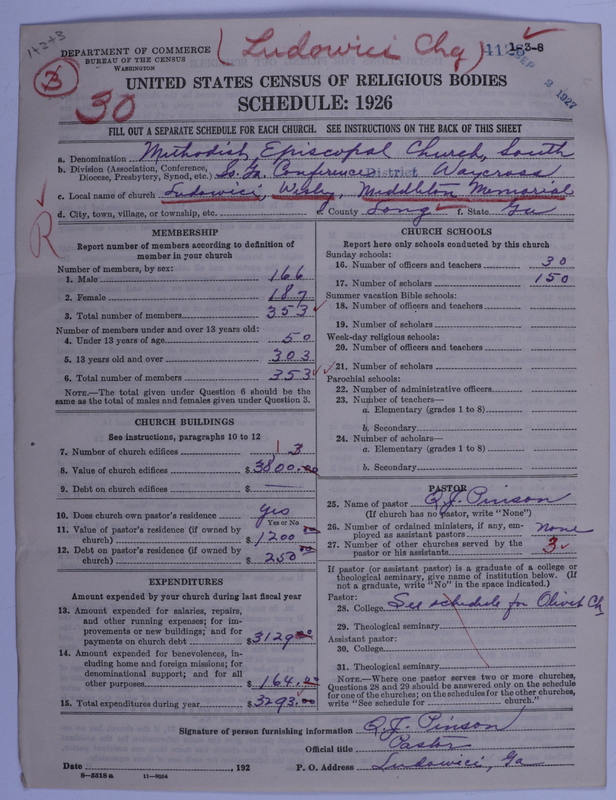 1+2+3
(Ludowici Chg)
1-3-8
SEP 2 1927
DEPARTMENT OF COMMERCE
BUREAU OF THE CENSUS
WASHINGTON
3
30
UNITED STATES CENSUS OF RELIGIOUS BODIES
SCHEDULE: 1926
FILL OUT A SEPARATE SCHEDULE FOR EACH CHURCH. SEE INSTRUCTIONS ON THE BACK OF THIS SHEET
a. Denomination Methodist Episcopal Church, South
b. Division (Association, Conference, Diocese, Presbytery, Synod, etc.) So. Ga. Conference District Waycross
c. Local name of church Ludowici, Wesley, Middleton Memorial
d. City, town, village, or township, etc. e. County Long f. State Ga
R
MEMBERSHIP
Report number of members according to definition of
member in your church
Number of members, by sex:
1. Male 166
2. Female 187
3. Total number of members 353
Number of members under and over 13 years old:
4. Under 13 years of age 50
5. 13 years old and over 303
6. Total number of members 353
NOTE.—The total given under Question 6 should be the
same as the total of males and females given under Question 3.
CHURCH BUILDINGS
See instructions, paragraphs 10 to 12
7. Number of church edifices 1 3
8. Value of church edifices $3800.00
9. Debt on church edifices $
10. Does church own pastor's residence yes
Yes or No
11. Value of pastor's residence (if owned by
church) $1200 00
12. Debt on pastor's residence (if owned by
church) $250 00
EXPENDITURES
Amount expended by your church during last fiscal year
13. Amount expended for salaries, repairs,
and other running expenses; for im-
provements or new buildings; and for
payments on church debt $3129 00
14. Amount expended for benevolences, in-
cluding home and foreign missions; for
denominational support; and for all
other purposes $164.00
15. Total expenditures during year $3293.00
CHURCH SCHOOLS
Report here only schools conducted by this church
Sunday schools:
16. Number of officers and teachers 30
17. Number of scholars 150
Summer vacation Bible schools:
18. Number of officers and teachers
19. Number of scholars
Week-day religious schools:
20. Number of officers and teachers
21. Number of scholars
Parochial schools:
22. Number of administrative officers
23. Number of teachers—
a. Elementary (grades 1 to 8)
b. Secondary
24. Number of scholars—
a. Elementary (grades 1 to 8)
b. Secondary
PASTOR
25. Name of pastor Q. J. Pinson
(If church has no pastor, write "None")
26. Number of ordained ministers, if any, em-
ployed as assistant pastors none
27. Number of other churches served by the
pastor or his assistants 3
If pastor (or assistant pastor) is a graduate of a college or
theological seminary, give name of institution below. (If
not a graduate, write "No" in the space indicated.)
Pastor:
28. College See schedule for Olivet Ch
29. Theological seminary
Assistant pastor:
30. College
31. Theological seminary
NOTE.—Where one pastor serves two or more churches,
Questions 28 and 29 should be answered only on the schedule
for one of the churches; on the schedules for the other churches,
write "See schedule for church."
Signature of person furnishing information Q. J. Pinson
Official title Pastor
Date , 192 P. O. Address Ludowici, Ga
8-5518a 11-9264